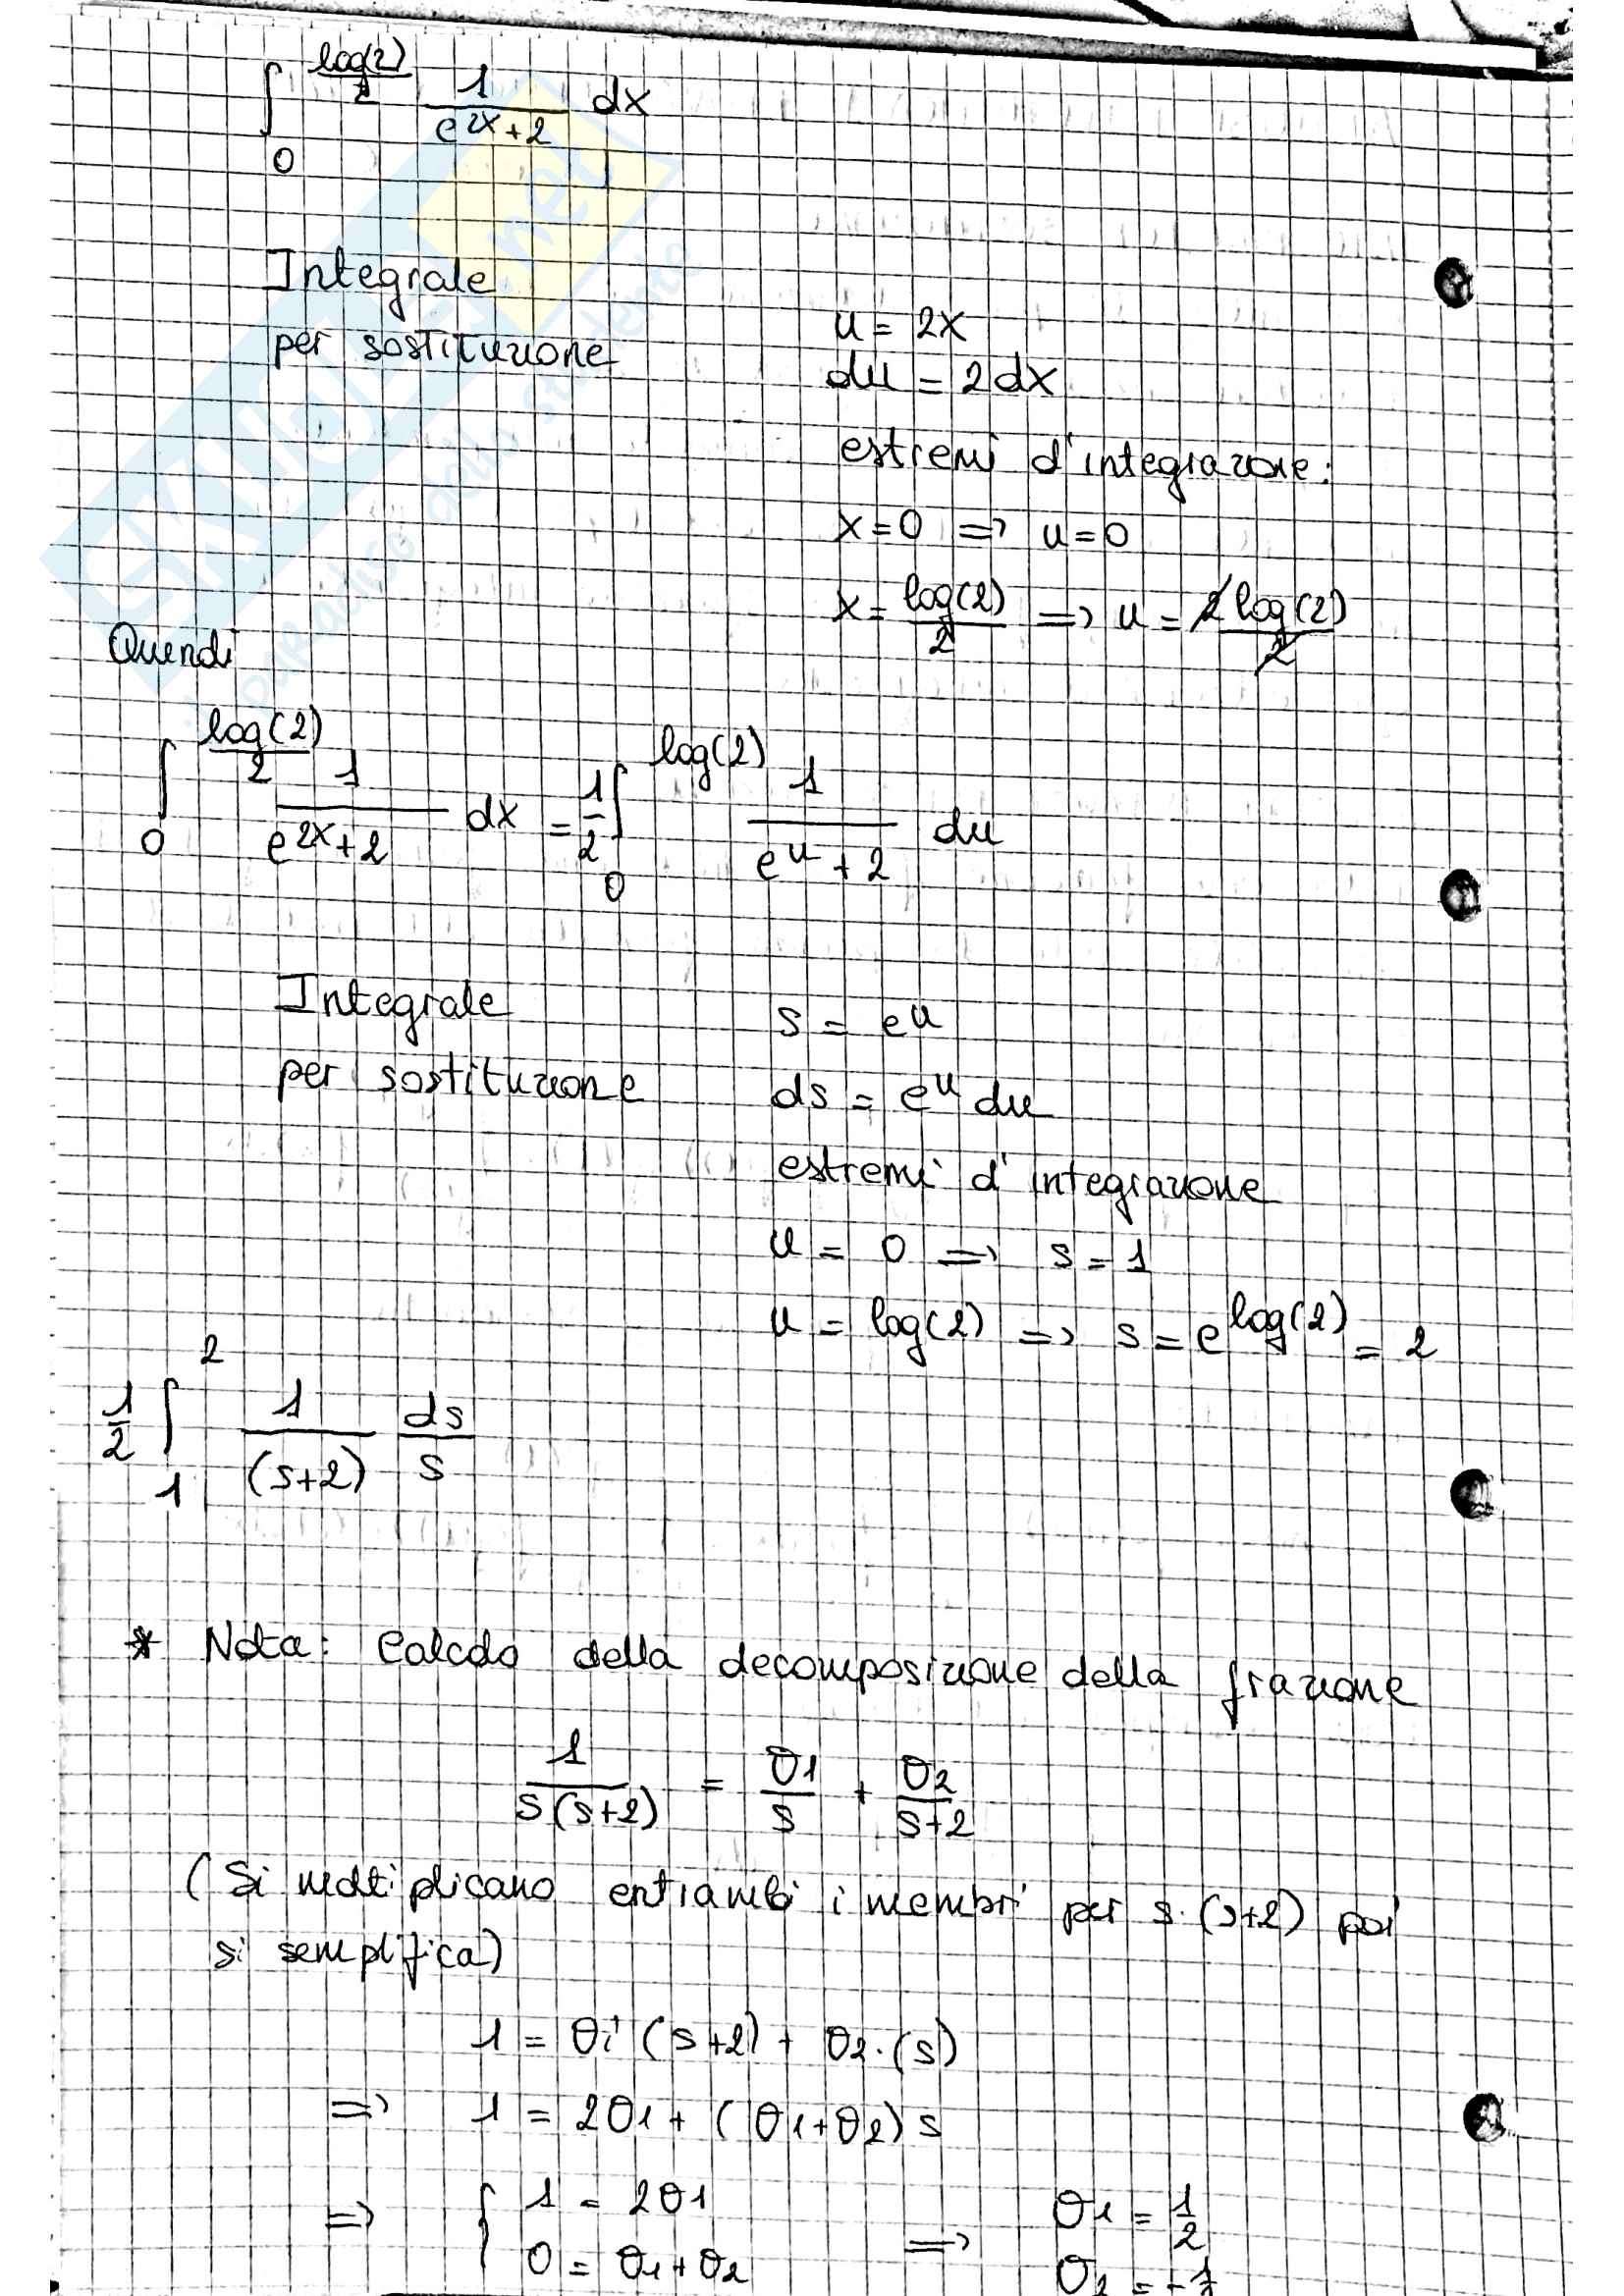 ∫₀^{log(2)/2} 1/(e^{2x}+2) dx
Integrale
per sostituzione
u = 2x
du = 2dx
estremi d'integrazione:
x=0 => u=0
x = log(2)/2 => u = 2log(2)/2
Quindi
∫₀^{log(2)/2} 1/(e^{2x}+2) dx = 1/2 ∫₀^{log(2)} 1/(e^u + 2) du
Integrale
per sostituzione
s = e^u
ds = e^u du
estremi d'integrazione
u = 0 => s = 1
u = log(2) => s = e^{log(2)} = 2
1/2 ∫₁² 1/(s+2) ds/s
* Nota: Calcolo della decomposizione della frazione
1/(s(s+2)) = θ1/s + θ2/(s+2)
(Si moltiplicano entrambi i membri per s·(s+2) poi
si semplifica)
1 = θi (s+2) + θ2·(s)
=> 1 = 2θ1 + (θ1+θ2)s
=> { 1 = 2θ1 => θ1 = 1/2
0 = θ1+θ2 θ2 = -1/2
SKUOLA.net
il paradiso dello studente